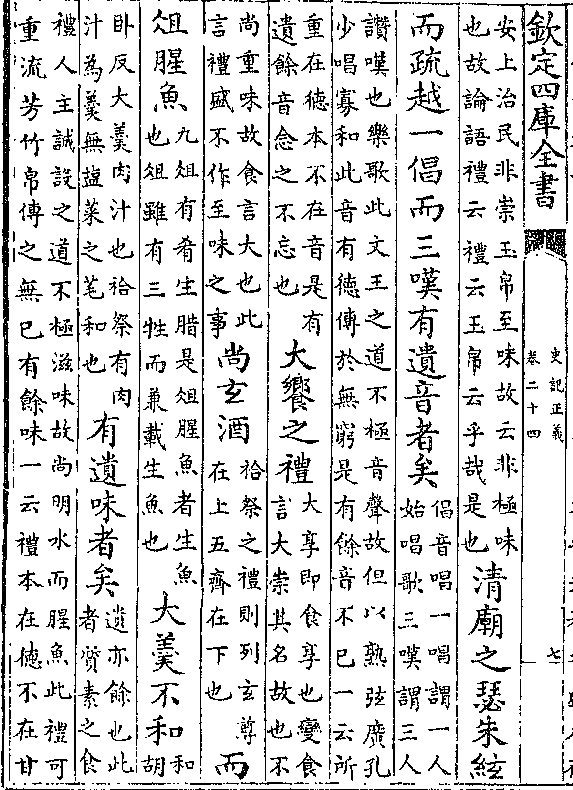 欽定四庫全書
史記正義
卷二十四
七
安上治民非崇玉帛至味故云非極味
也故論語禮云禮云玉帛云乎哉是也
清廟之瑟朱絃
而疏越一倡而三嘆有遺音者矣
倡音唱一唱謂一人
始唱歌三嘆謂三人
讚嘆也樂歌此文王之道不極音聲故但以熟弦廣孔
少唱寡和此音有德傳於無窮是有餘音不已一云所
重在德本不在音是有
遺餘音念之不忘也
大饗之禮
大享即食享也變食
言大崇其名故也不
尚重味故食言大也此
言禮盛不作至味之事
尚玄酒
祫祭之禮則列玄尊
在上五齊在下也
而
俎腥魚
九俎有肴生腊是俎腥魚者生魚
也俎雖有三牲而兼載生魚也
大羹不和
和
胡
卧反大羹肉汁也祫祭有肉
汁為羹無盬菜之芼和也
有遺味者矣
遺亦餘也此
者質素之食
禮人主誠設之道不極滋味故尚明水而腥魚此禮可
重流芳竹帛傳之無已有餘味一云禮本在德不在甘